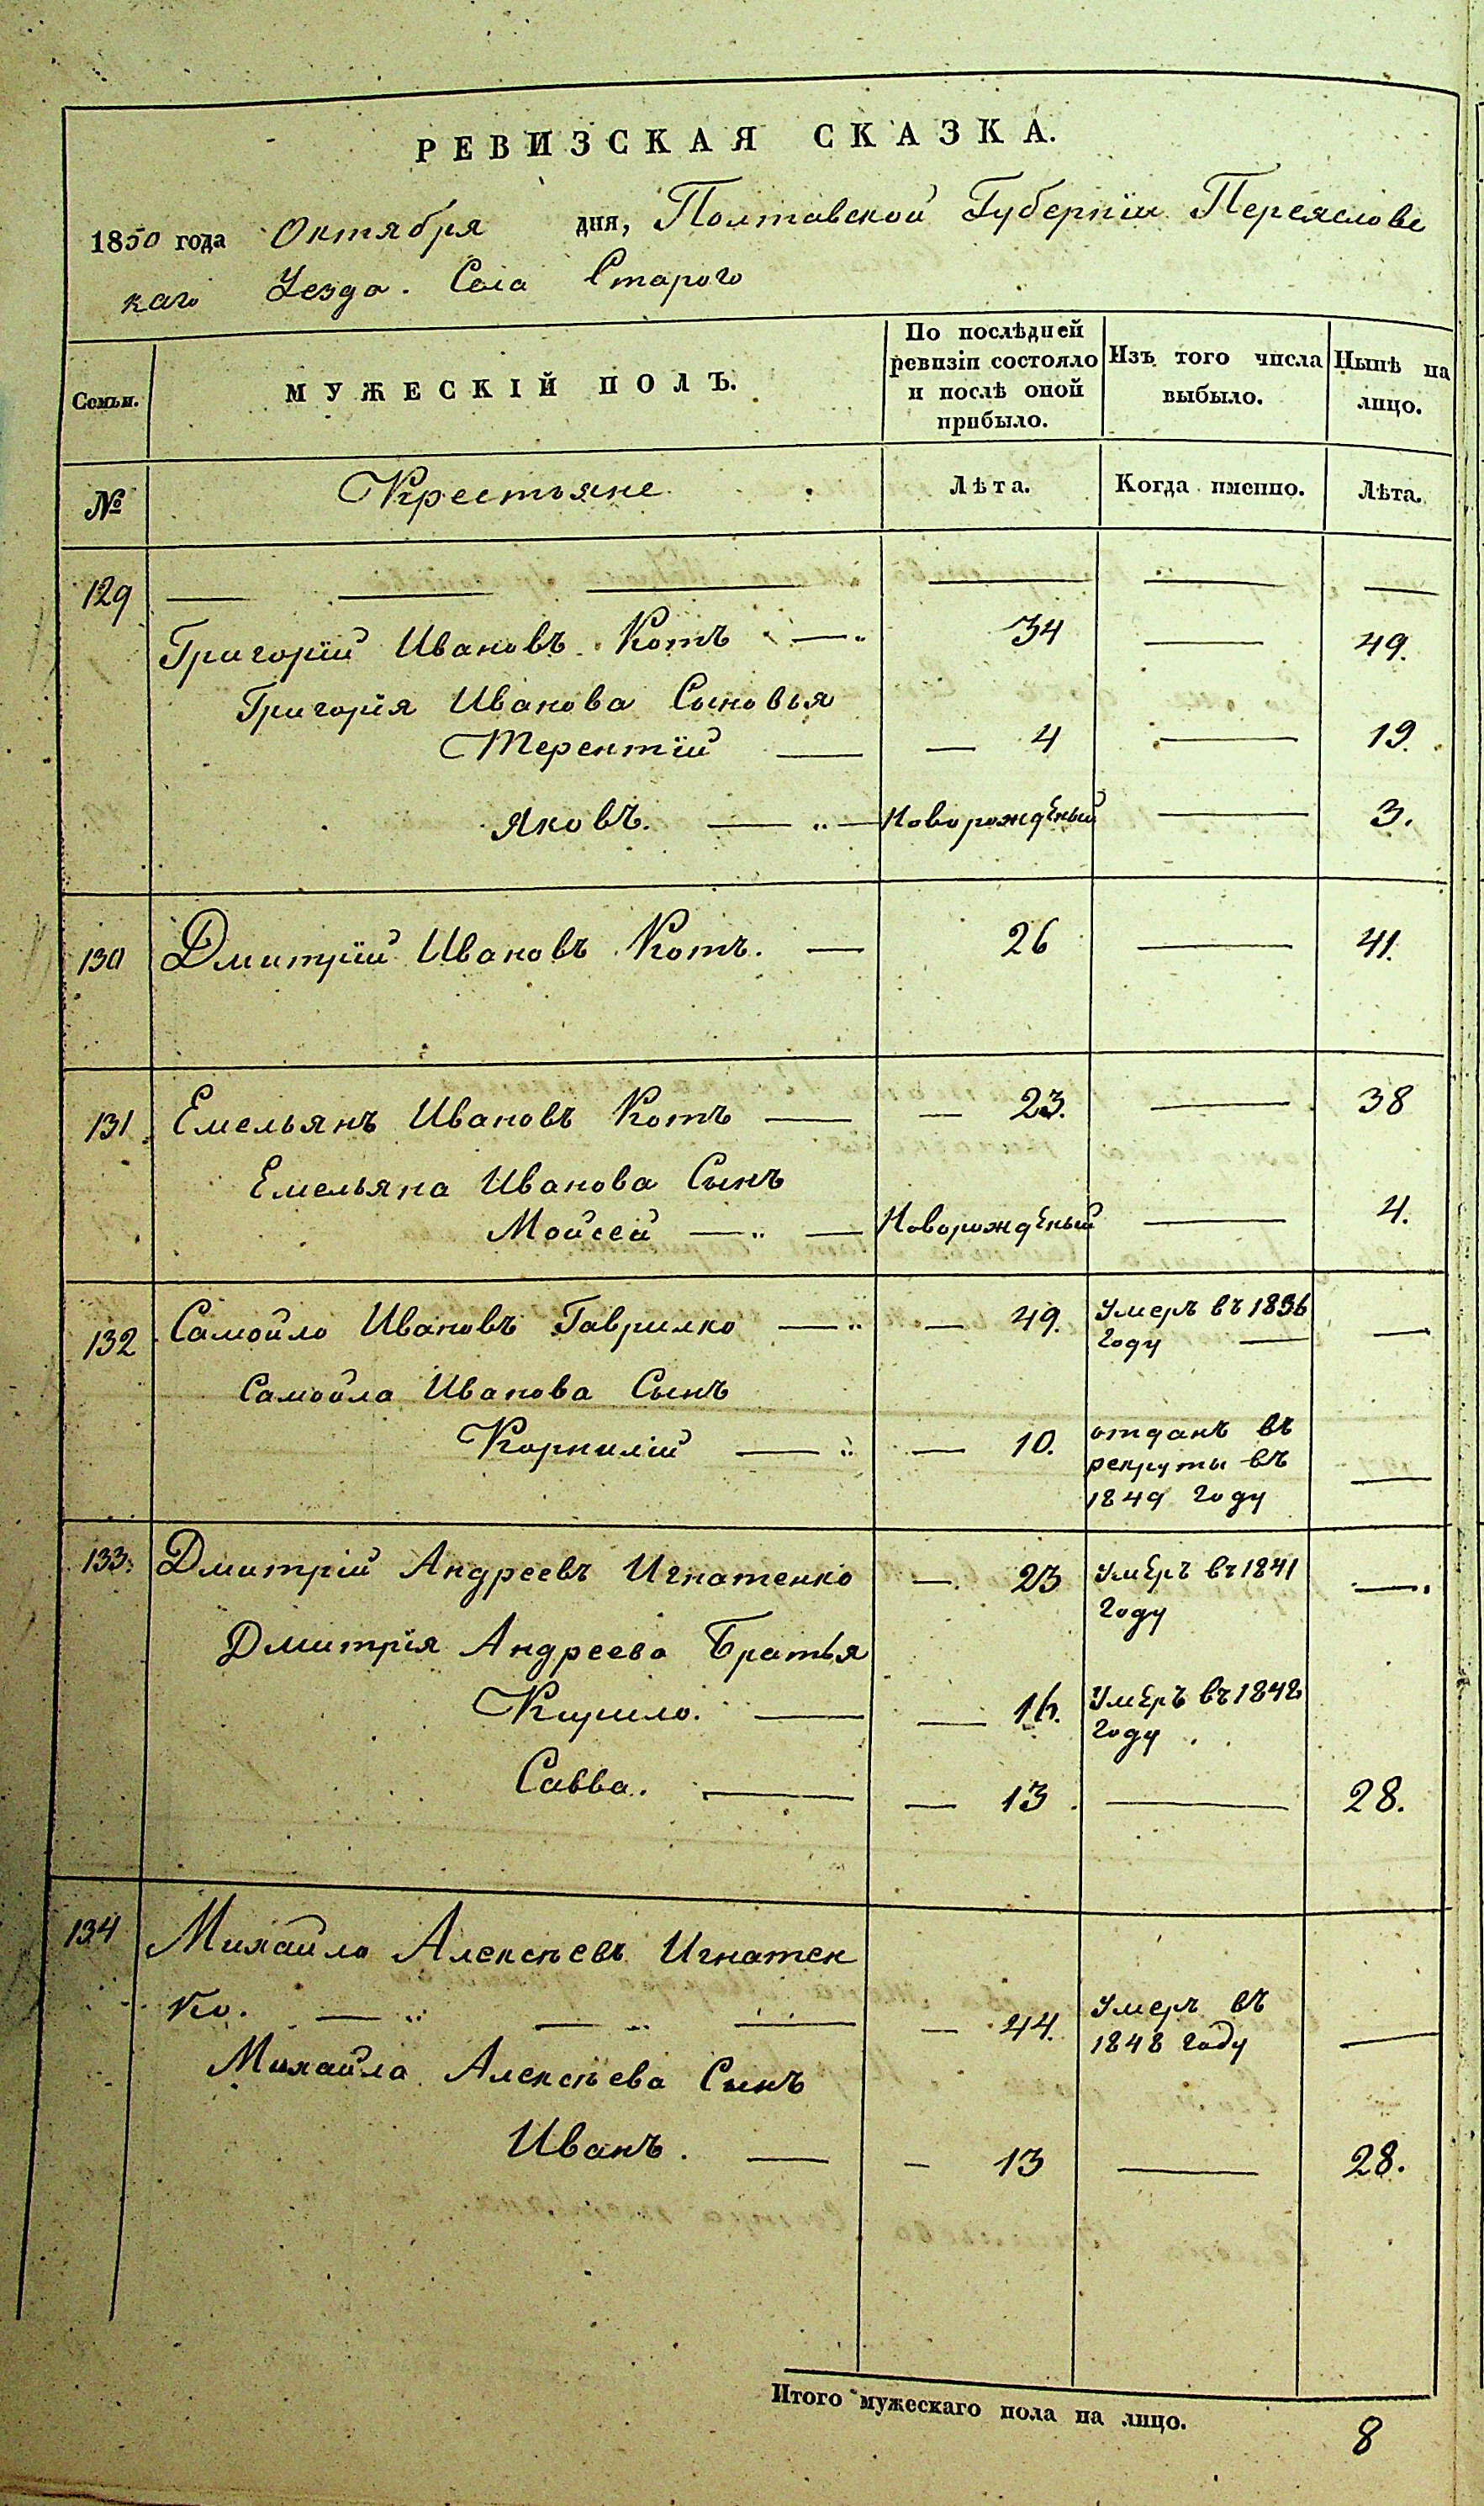 РЕВИЗСКАЯ СКАЗКА.
1850 года Октября дня, Полтавской Губерніи Переяславс
каго Уезда. Села Старого
Семьи. МУЖЕСКІЙ ПОЛЪ. По послѣдней ревизіи состояло и послѣ оной прибыло. Изъ того числа выбыло. Нынѣ на лицо.
№ Крестьяне Лѣта. Когда именно. Лѣта.
129 — — — — — —
Григорій Ивановъ Котъ — 34 — 49.
Григорія Иванова Сыновья
Терентій — — 4 — 19.
Яковъ. — — Новорожденый — 3.
130 Дмитрій Ивановъ Котъ. — 26 — 41.
131 Емельянъ Ивановъ Котъ — — 23. — 38
Емельяна Иванова Сынъ
Мойсей — — Новорожденый — 4.
132 Самойло Ивановъ Гаврилко — — 49. Умеръ въ 1836
году — —
Самойла Иванова Сынъ
Корнилій — — 10. отданъ въ
рекруты въ —
1849 году
133. Дмитрій Андреевъ Игнатенко — 23 Умеръ въ 1841 —.
году
Дмитрія Андреева Братья
Кирило. — — 16. Умеръ въ 1848
году
Савва. — — 13 — 28.
134 Михайло Алексѣевъ Игнатен
ко. — — — — 44. Умеръ въ
1848 году —
Михайла Алексѣева Сынъ
Иванъ. — - 13 — 28.
Итого мужескаго пола на лицо. 8